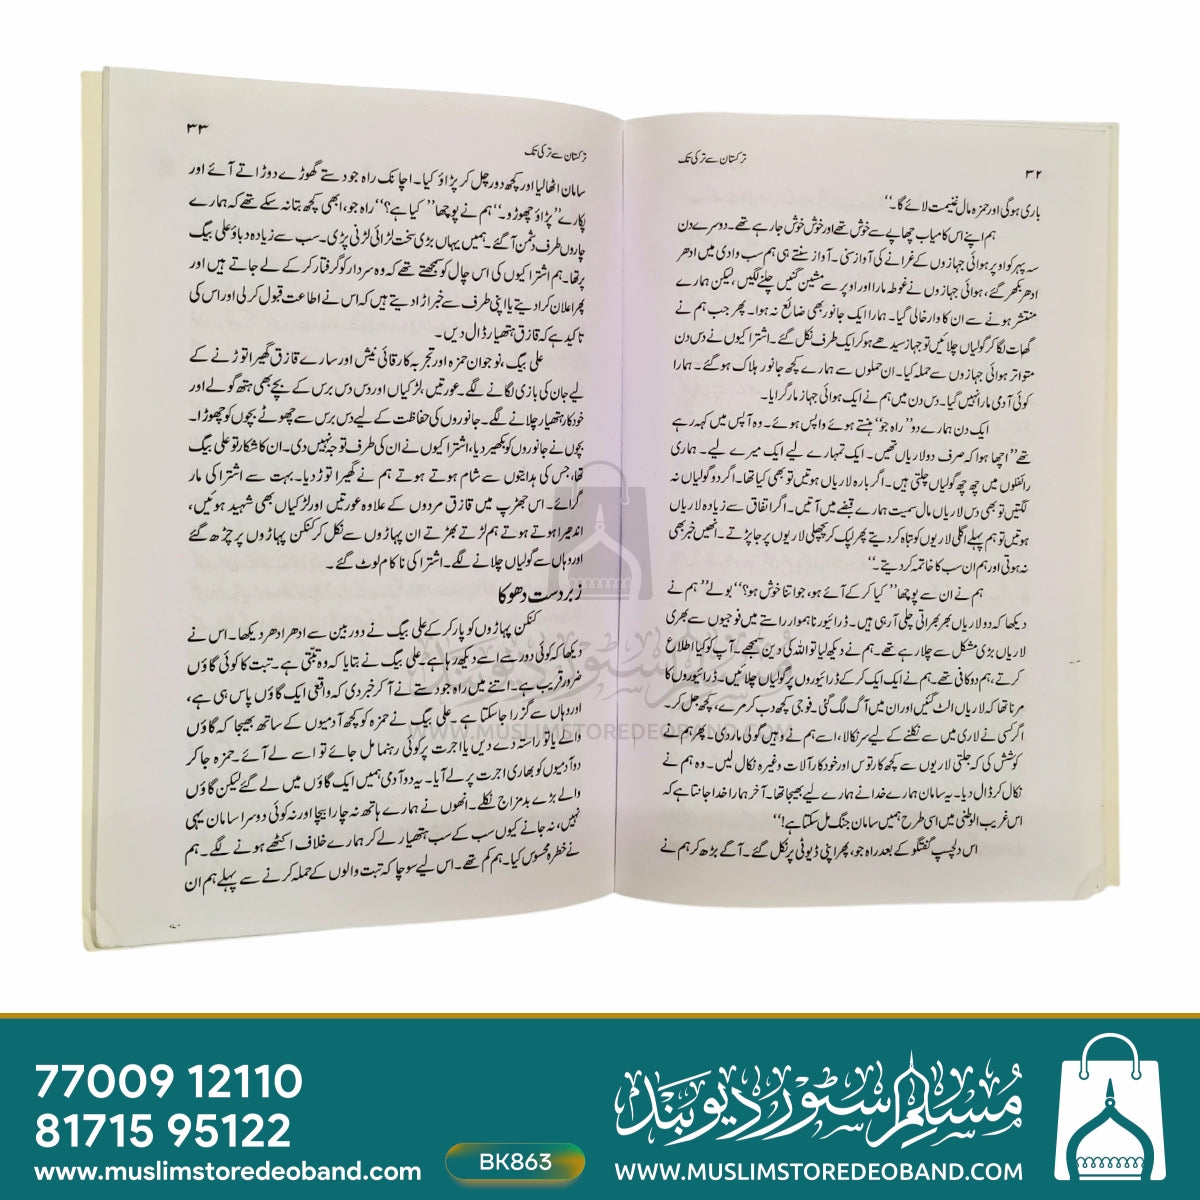 ۳۲
ترکستان سے ترکی تک
باری ہوگی اور حمزہ مال غنیمت لائے گا۔‘‘
ہم اپنے اس کامیاب چھاپے سے خوش تھے اور خوش خوش جارہے تھے۔ دوسرے دن
سہ پہر کو اوپر ہوائی جہازوں کے غرانے کی آواز سنی۔ آواز سنتے ہی ہم سب وادی میں ادھر
ادھر بکھر گئے، ہوائی جہازوں نے غوطہ مارا اور اوپر سے مشین گنیں چلنے لگیں، لیکن ہمارے
منتشر ہونے سے ان کا وار خالی گیا۔ ہمارا ایک جانور بھی ضائع نہ ہوا۔ پھر جب ہم نے
گھات لگا کر گولیاں چلائیں تو جہاز سیدھے ہو کر ایک طرف نکل گئے۔ اشتراکیوں نے دس دن
متواتر ہوائی جہازوں سے حملہ کیا۔ ان حملوں سے ہمارے کچھ جانور ہلاک ہوگئے۔ ہمارا
کوئی آدمی مارا نہیں گیا۔ دس دن میں ہم نے ایک ہوائی جہاز مار گرایا۔
ایک دن ہمارے دو ’’راہ جو‘‘ ہنستے ہوئے واپس ہوئے۔ وہ آپس میں کہہ رہے
تھے ’’اچھا ہوا کہ صرف دو لاریاں تھیں۔ ایک تمہارے لیے ایک میرے لیے۔ ہماری
رائفلوں میں چھ چھ گولیاں چلتی ہیں۔ اگر بارہ لاریاں ہوتیں تو بھی کیا تھا۔ اگر دو گولیاں نہ
لگتیں تو بھی دس لاریاں مال سمیت ہمارے قبضے میں آتیں۔ اگر اتفاق سے زیادہ لاریاں
ہوتیں تو ہم پہلے اگلی لاریوں کو تباہ کر دیتے پھر لپک کر پچھلی لاریوں پر جا پڑتے۔ انھیں خبر بھی
نہ ہوتی اور ہم ان سب کا خاتمہ کر دیتے۔‘‘
ہم نے ان سے پوچھا ’’کیا کر کے آئے ہو، جو اتنا خوش ہو؟‘‘ بولے ’’ہم نے
دیکھا کہ دو لاریاں بھربھراتی چلی آرہی ہیں۔ ڈرائیور ناہموار راستے میں فوجیوں سے بھری
لاریاں بڑی مشکل سے چلا رہے تھے۔ ہم نے دیکھ لیا تو اللہ کی دین سمجھے۔ آپ کو کیا اطلاع
کرتے، ہم دو کافی تھے۔ ہم نے ایک ایک کر کے ڈرائیوروں پر گولیاں چلائیں۔ ڈرائیوروں کا
مرنا تھا کہ لاریاں الٹ گئیں اور ان میں آگ لگ گئی۔ فوجی کچھ دب کر مرے، کچھ جل کر۔
اگر کسی نے لاری میں سے نکلنے کے لیے سر نکالا، اسے ہم نے وہیں گولی مار دی۔ پھر ہم نے
کوشش کی کہ جلتی لاریوں سے کچھ کارتوس اور خودکار آلات وغیرہ نکال لیں۔ وہ ہم نے
نکال کر ڈال دیا۔ یہ سامان ہمارے خدا نے ہمارے لیے بھیجا تھا۔ آخر ہمارا خدا جانتا ہے کہ
اس غریب الوطنی میں اسی طرح ہمیں سامان جنگ مل سکتا ہے!‘‘
اس دلچسپ گفتگو کے بعد راہ جو، پھر اپنی ڈیوٹی پر نکل گئے۔ آگے بڑھ کر ہم نے
۳۳
ترکستان سے ترکی تک
سامان اٹھا لیا اور کچھ دور چل کر پڑاؤ کیا۔ اچانک راہ جو دستے گھوڑے دوڑاتے آئے اور
پکارے ’’پڑاؤ چھوڑو۔‘‘ ہم نے پوچھا ’’کیا ہے؟‘‘ راہ جو، ابھی کچھ بتا نہ سکے تھے کہ ہمارے
چاروں طرف دشمن آگئے۔ ہمیں یہاں بڑی سخت لڑائی لڑنی پڑی۔ سب سے زیادہ دباؤ علی بیگ
پر تھا۔ ہم اشتراکیوں کی اس چال کو سمجھتے تھے کہ وہ سردار کو گرفتار کر کے لے جاتے ہیں اور
پھر اعلان کرا دیتے یا اپنی طرف سے خبر اڑا دیتے ہیں کہ اس نے اطاعت قبول کر لی اور اس کی
تاکید ہے کہ قازق ہتھیار ڈال دیں۔
علی بیگ، نوجوان حمزہ اور تجربہ کار قائی نیش اور سارے قازق گھیرا توڑنے کے
لیے جان کی بازی لگانے لگے۔ عورتیں، لڑکیاں اور دس دس برس کے بچے بھی ہتھ گولے اور
خودکار ہتھیار چلانے لگے۔ جانوروں کی حفاظت کے لیے دس برس سے چھوٹے بچوں کو چھوڑا۔
بچوں نے جانوروں کو بکھیر دیا، اشتراکیوں نے ان کی طرف توجہ نہیں دی۔ ان کا شکار تو علی بیگ
تھا، جس کی ہدایتوں سے شام ہوتے ہوتے ہم نے گھیرا توڑ دیا۔ بہت سے اشتراکی مار
گرائے۔ اس جھڑپ میں قازق مردوں کے علاوہ عورتیں اور لڑکیاں بھی شہید ہوئیں،
اندھیرا ہوتے ہوتے ہم لڑتے بھڑتے ان پہاڑوں سے نکل کر کنکن پہاڑوں پر چڑھ گئے
اور وہاں سے گولیاں چلانے لگے۔ اشتراکی ناکام لوٹ گئے۔
زبردست دھوکا
کنکن پہاڑوں کو پار کر کے علی بیگ نے دوربین سے ادھر ادھر دیکھا۔ اس نے
دیکھا کہ کوئی دور سے اسے دیکھ رہا ہے۔ علی بیگ نے بتایا کہ وہ تبتی ہے۔ تبت کا کوئی گاؤں
ضرور قریب ہے۔ اتنے میں راہ جو دستے نے آ کر خبر دی کہ واقعی ایک گاؤں پاس ہی ہے،
اور وہاں سے گزرا جا سکتا ہے۔ علی بیگ نے حمزہ کو کچھ آدمیوں کے ساتھ بھیجا کہ گاؤں
والے یا تو راستہ دے دیں یا اجرت پر کوئی رہنما مل جائے تو اسے لے آئے۔ حمزہ جا کر
دو آدمیوں کو بھاری اجرت پر لے آیا۔ یہ دو آدمی ہمیں ایک گاؤں میں لے گئے لیکن گاؤں
والے بڑے بدمزاج نکلے۔ انھوں نے ہمارے ہاتھ نہ چارا بیچا اور نہ کوئی دوسرا سامان یہی
نہیں، نہ جانے کیوں سب کے سب ہتھیار لے کر ہمارے خلاف اکٹھے ہونے لگے۔ ہم
نے خطرہ محسوس کیا۔ ہم کم تھے۔ اس لیے سوچا کہ تبت والوں کے حملہ کرنے سے پہلے ہم ان
مسلم سٹور دیوبند
WWW.MUSLIMSTOREDEOBAND.COM
77009 12110
81715 95122
www.muslimstoredeoband.com
BK863
مسلم سٹور دیوبند
WWW.MUSLIMSTOREDEOBAND.COM